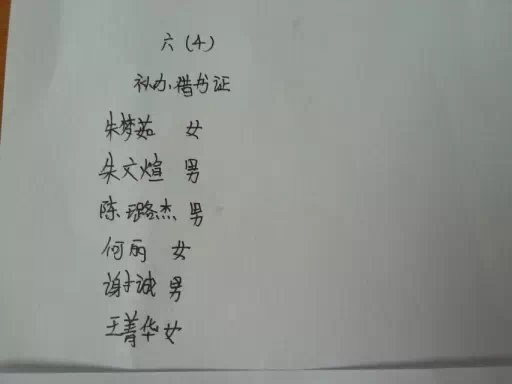 六（4）
补办借书证
朱梦茹 女
朱文煊 男
陈璐杰 男
何丽 女
谢诚 男
王菁华 女